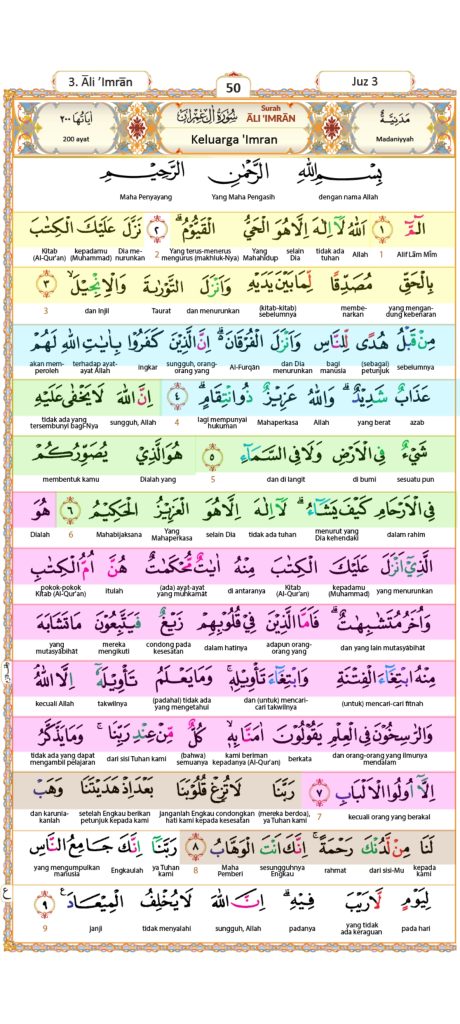 3. Āli ’Imrān
50
Juz 3
اٰيَاتُهَا ٢٠٠
200 ayat
سُوْرَةُ اٰلِ عِمْرَانَ
Surah
ĀLI 'IMRĀN
Keluarga 'Imran
مَدَنِيَّةٌ
Madaniyyah
بِسْمِ اللّٰهِ الرَّحْمٰنِ الرَّحِيْمِ
dengan nama Allah Yang Maha Pengasih Maha Penyayang
الۤمّۤ ۚ ١ اَللّٰهُ لَآ اِلٰهَ اِلَّا هُوَ الْحَيُّ الْقَيُّوْمُۗ ٢ نَزَّلَ عَلَيْكَ الْكِتٰبَ
Alif Lām Mīm 1 Allah tidak ada tuhan selain Dia Yang Mahahidup Yang terus-menerus mengurus (makhluk-Nya) 2 Dia me-nurunkan kepadamu (Muhammad) Kitab (Al-Qur'an)
بِالْحَقِّ مُصَدِّقًا لِّمَا بَيْنَ يَدَيْهِ وَاَنْزَلَ التَّوْرٰىةَ وَالْاِنْجِيْلَۙ ٣
yang mengan-dung kebenaran membe-narkan (kitab-kitab) sebelumnya dan menurunkan Taurat dan Injil 3
مِنْ قَبْلُ هُدًى لِّلنَّاسِ وَاَنْزَلَ الْفُرْقَانَۗ اِنَّ الَّذِيْنَ كَفَرُوْا بِاٰيٰتِ اللّٰهِ لَهُمْ
sebelumnya (sebagai) petunjuk bagi manusia dan Dia menurunkan Al-Furqān sungguh, orang-orang yang ingkar terhadap ayat-ayat Allah akan mem-peroleh
عَذَابٌ شَدِيْدٌۗ وَاللّٰهُ عَزِيْزٌ ذُو انْتِقَامٍۗ ٤ اِنَّ اللّٰهَ لَا يَخْفٰى عَلَيْهِ
azab yang berat dan Allah Mahaperkasa lagi mempunyai hukuman 4 sungguh, Allah tidak ada yang tersembunyi bagi-Nya
شَيْءٌ فِى الْاَرْضِ وَلَا فِى السَّمَاۤءِ ٥ هُوَ الَّذِيْ يُصَوِّرُكُمْ
sesuatu pun di bumi dan di langit 5 Dialah yang membentuk kamu
فِى الْاَرْحَامِ كَيْفَ يَشَاۤءُۗ لَآ اِلٰهَ اِلَّا هُوَ الْعَزِيْزُ الْحَكِيْمُ ٦ هُوَ
dalam rahim menurut yang Dia kehendaki tidak ada tuhan selain Dia Yang Mahaperkasa Mahabijaksana 6 Dialah
الَّذِيْٓ اَنْزَلَ عَلَيْكَ الْكِتٰبَ مِنْهُ اٰيٰتٌ مُّحْكَمٰتٌ هُنَّ اُمُّ الْكِتٰبِ
yang menurunkan kepadamu (Muhammad) Kitab (Al-Qur'an) di antaranya (ada) ayat-ayat yang muhkamāt itulah pokok-pokok Kitab (Al-Qur'an)
وَاُخَرُ مُتَشٰبِهٰتٌۗ فَاَمَّا الَّذِيْنَ فِيْ قُلُوْبِهِمْ زَيْغٌ فَيَتَّبِعُوْنَ مَا تَشَابَهَ
dan yang lain mutasyābihāt adapun orang-orang yang dalam hatinya condong pada kesesatan mereka mengikuti yang mutasyābihāt
مِنْهُ ابْتِغَاۤءَ الْفِتْنَةِ وَابْتِغَاۤءَ تَأْوِيْلِهٖۚ وَمَا يَعْلَمُ تَأْوِيْلَهٗٓ اِلَّا اللّٰهُ
(untuk) mencari-cari fitnah dan (untuk) mencari-cari takwilnya (padahal) tidak ada yang mengetahui takwilnya kecuali Allah
وَالرّٰسِخُوْنَ فِى الْعِلْمِ يَقُوْلُوْنَ اٰمَنَّا بِهٖۙ كُلٌّ مِّنْ عِنْدِ رَبِّنَاۚ وَمَا يَذَّكَّرُ
dan orang-orang yang ilmunya mendalam berkata kami beriman kepadanya (Al-Qur'an) (bahwa) semuanya dari sisi Tuhan kami tidak ada yang dapat mengambil pelajaran
اِلَّآ اُولُوا الْاَلْبَابِ ٧ رَبَّنَا لَا تُزِغْ قُلُوْبَنَا بَعْدَ اِذْ هَدَيْتَنَا وَهَبْ
kecuali orang yang berakal 7 (mereka berdoa), ya Tuhan kami Janganlah Engkau condongkan hati kami kepada kesesatan setelah Engkau berikan petunjuk kepada kami dan karunia-kanlah
لَنَا مِنْ لَّدُنْكَ رَحْمَةًۚ اِنَّكَ اَنْتَ الْوَهَّابُ ٨ رَبَّنَآ اِنَّكَ جَامِعُ النَّاسِ
kepada kami dari sisi-Mu rahmat sesungguhnya Engkau Maha Pemberi 8 ya Tuhan kami Engkaulah yang mengumpulkan manusia
لِيَوْمٍ لَّا رَيْبَ فِيْهِۗ اِنَّ اللّٰهَ لَا يُخْلِفُ الْمِيْعَادَ ٩
pada hari yang tidak ada keraguan padanya sungguh, Allah tidak menyalahi janji 9
ع